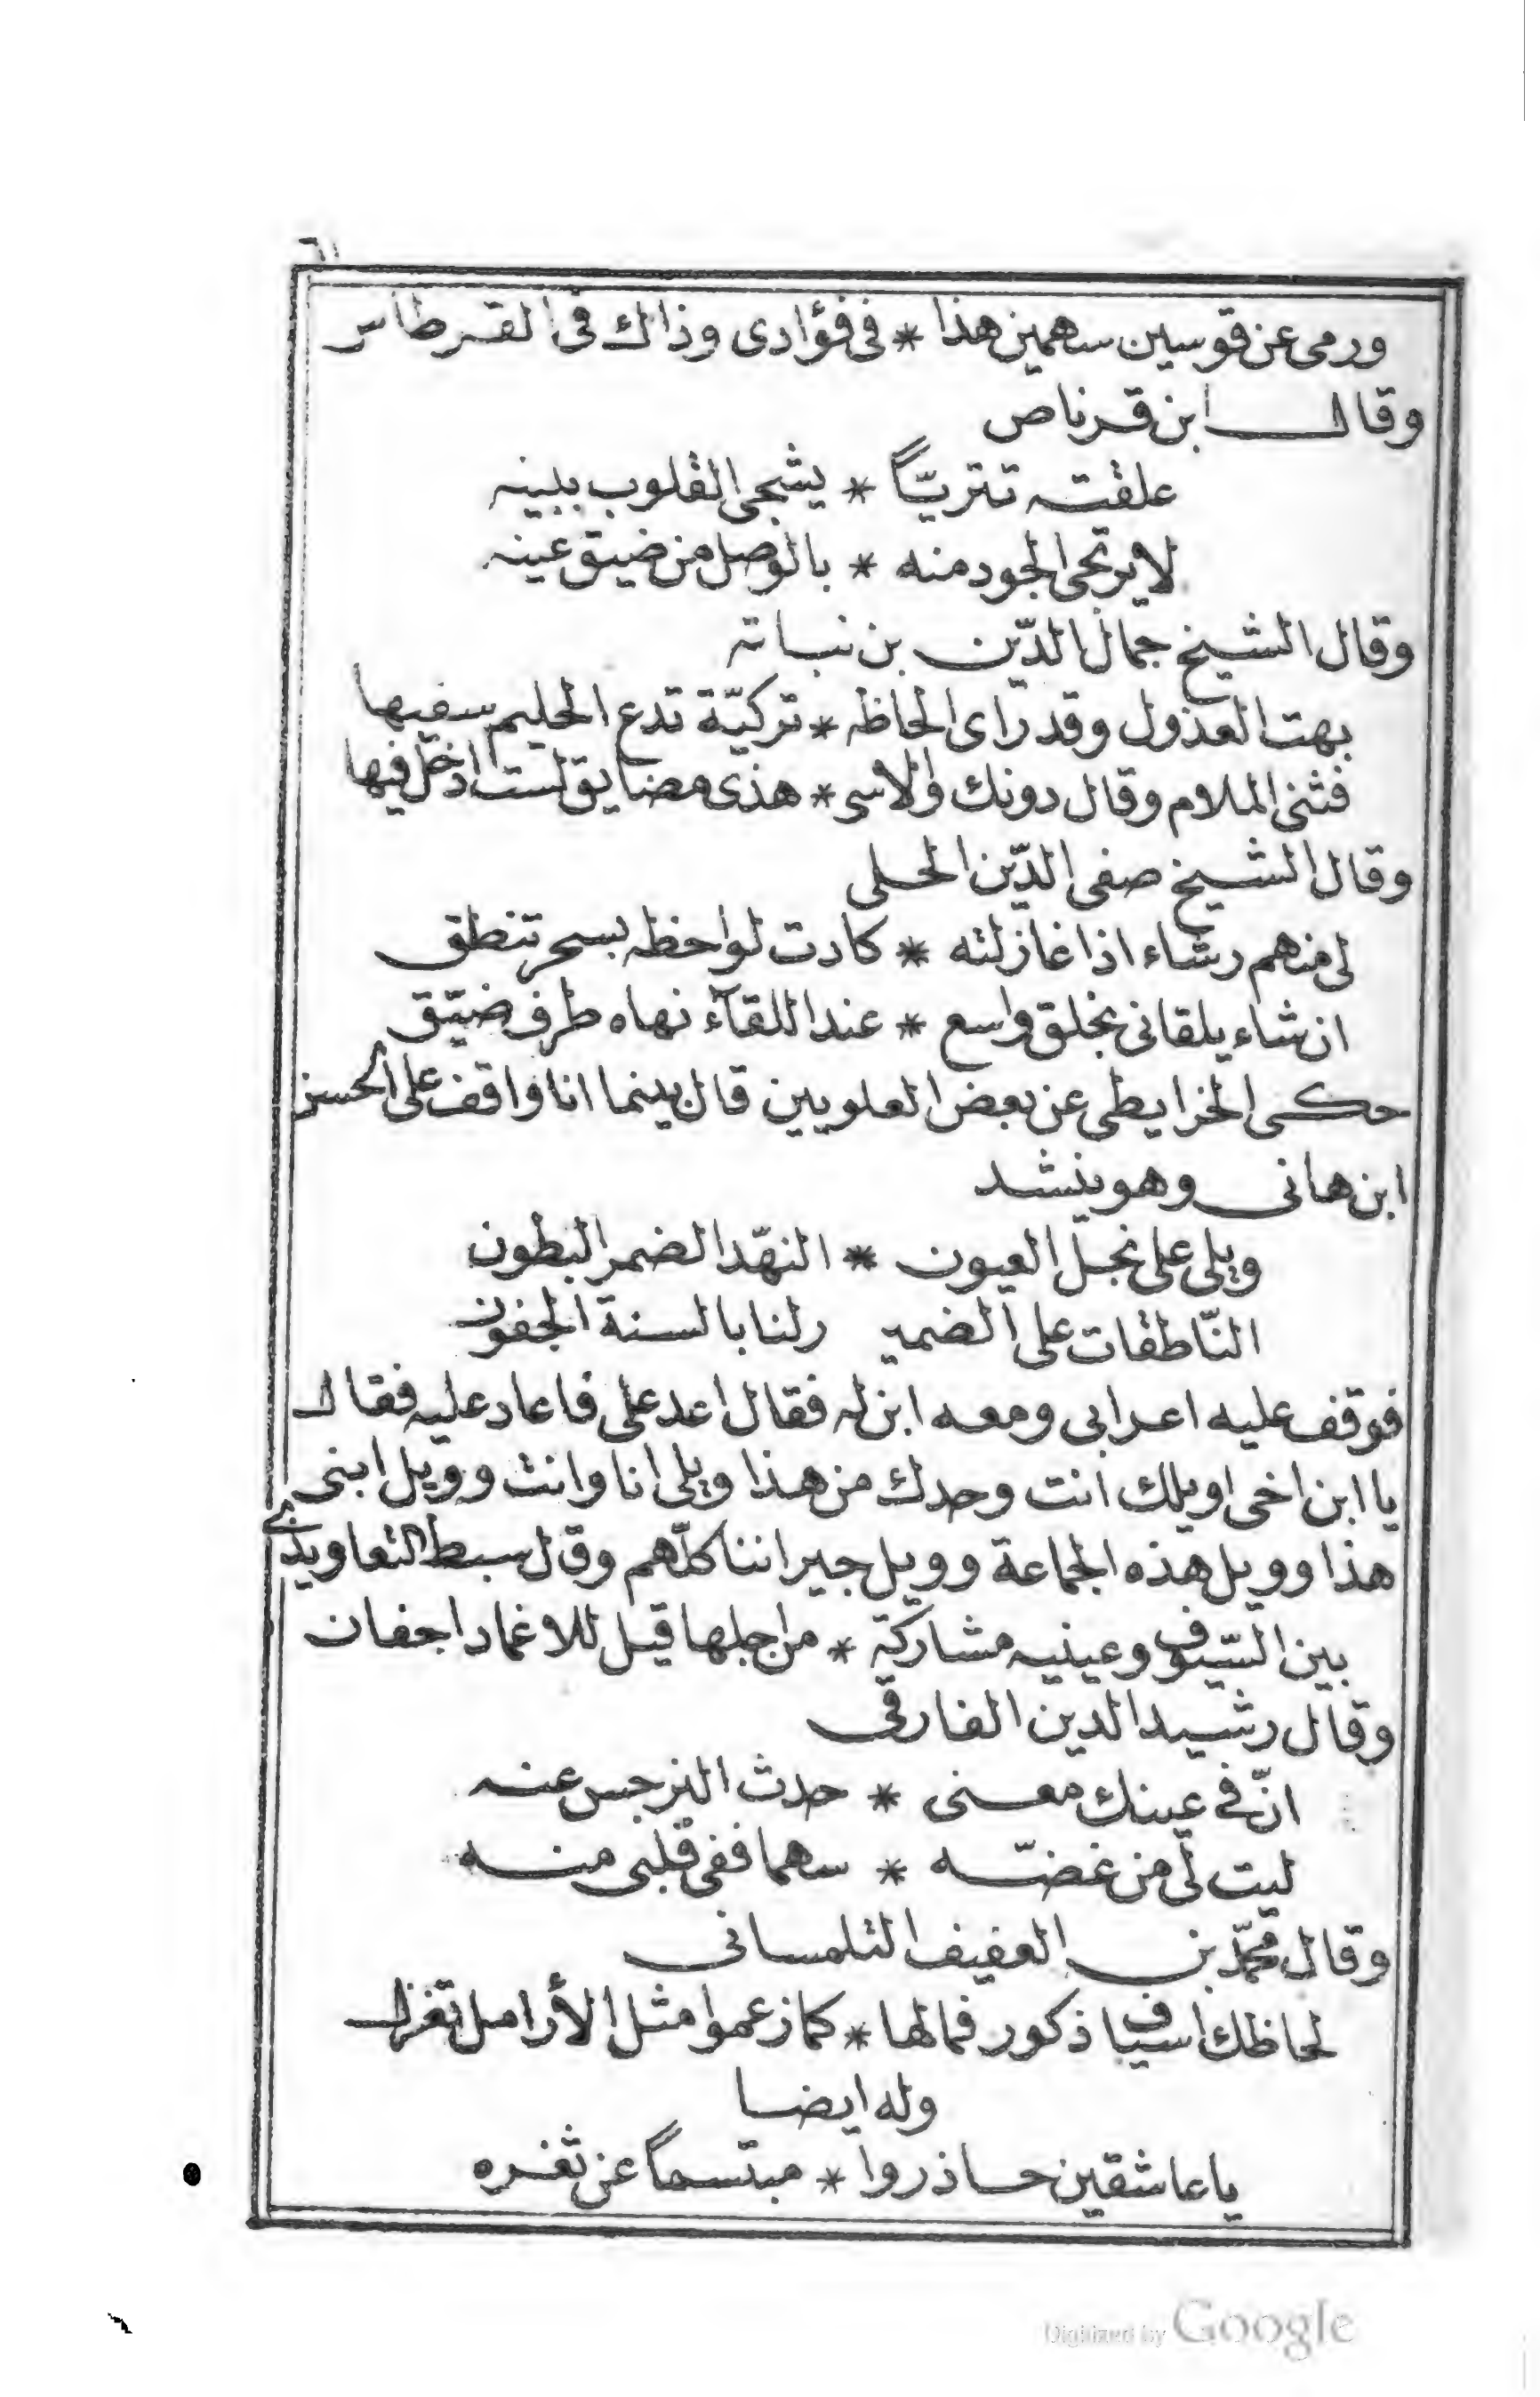 ٦١
ورمى عن قوسين سهمين هذا * فى فؤادى وذاك فى القرطاس
وقال ابن قرناص
علقته تتريّاً * يشجى القلوب ببينه
لا يرتجى الجود منه * بالوصل من ضيق عينه
وقال الشيخ جمال الدّين بن نباته
بهت العذول وقد رأى الحاظه * تركيّة تدع الحليم سفيها
فثنى الملام وقال دونك والاسى * هذى مضايق لست ادخل فيها
وقال الشيخ صفى الدّين الحلى
لى منهم رشاء اذا غازلته * كادت لواحظه بسحر تنطق
ان شاء يلقانى بخلق واسع * عند اللقآء نهاه طرف ضيّق
حكى الخرايطى عن بعض العلويين قال بينما انا واقف على الحسن
ابن هانى وهو ينشد
ويلى على نجل العيون * النهّد الضمر البطون
النّاطقات على الضمير رلنا بالسنة الجفون
فوقف عليه اعرابى ومعه ابن له فقال اعد على فاعاد عليه فقال
يا ابن اخى اويلك انت وحدك من هذا ويلى انا وانت وويل ابنى
هذا وويل هذه الجماعة وويل جيراننا كلّهم وقال سبط التعاويذى
بين السّيوف وعينيه مشاركة * من اجلها قيل للاغماد اجفان
وقال رشيد الدين الفارقى
انّ فى عينك معنى * حدث النرجس عنه
ليت لى من غضّه * سهما ففى قلبى منه
وقال محمّد بن العفيف التلمسانى
لحاظك اسياف ذكور فمالها * كما زعموا مثل الأرامل تغزل
وله ايضا
يا عاشقين حاذروا * مبتسماً عن ثغره
Digitized by Google